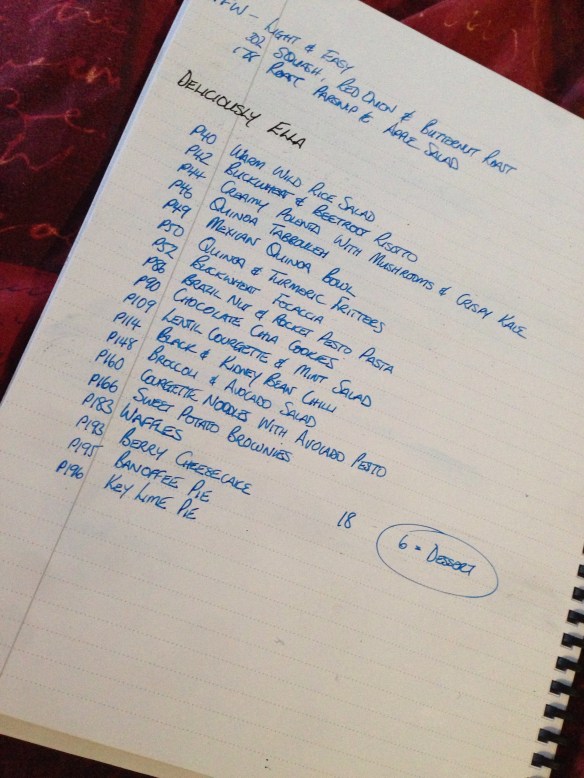 FW - LIGHT & EASY
302 SQUASH, RED ONION & BUTTERNUT ROAST
178 ROAST PARSNIP & APPLE SALAD
DELICIOUSLY ELLA
P40 WARM WILD RICE SALAD
P42 BUCKWHEAT & BEETROOT RISOTTO
P44 CREAMY POLENTA WITH MUSHROOMS & CRISPY KALE
P46 QUINOA TABBOULEH
P49 MEXICAN QUINOA BOWL
P50 QUINOA & TURMERIC FRITTERS
P52 BUCKWHEAT FOCACCIA
P86 BRAZIL NUT & ROCKET PESTO PASTA
P90 CHOCOLATE CHIA COOKIES
P109 LENTIL COURGETTE & MINT SALAD
P114 BLACK & KIDNEY BEAN CHILLI
P148 BROCCOLI & AVOCADO SALAD
P160 COURGETTE NOODLES WITH AVOCADO PESTO
P166 SWEET POTATO BROWNIES
P183 WAFFLES
P193 BERRY CHEESECAKE
P195 BANOFFEE PIE
P196 KEY LIME PIE
18
6 = DESSERT